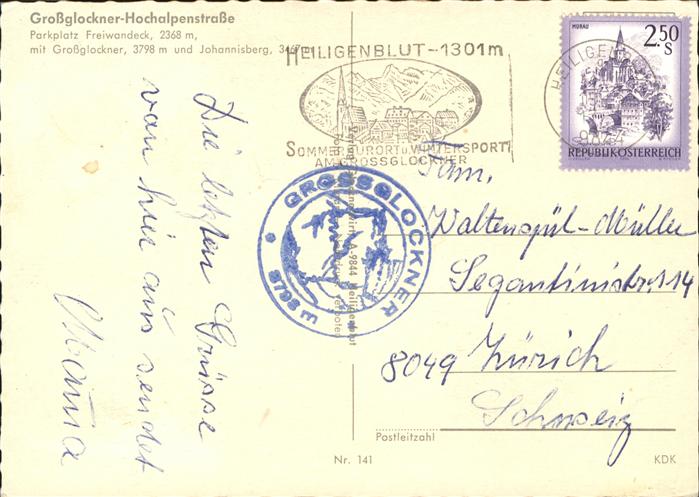 Großglockner-Hochalpenstraße
Parkplatz Freiwandeck, 2368 m,
mit Großglockner, 3798 m und Johannisberg,
HEILIGENBLUT-1301m
SOMMERKURORT U. WINTERSPORT
AM GROSSGLOCKNER
HEILIGEN
MURAU
2.50
S
REPUBLIK ÖSTERREICH
GROSSGLOCKNER
3798 m
A-9844 Heiligenblut
verboten
Die letzten Grüsse
von hier aus sendet
Mama
Fam.
Waltenspül-Müller
Segantinistr. 114
8049 Zürich
Schweiz
Postleitzahl
Nr. 141
KDK